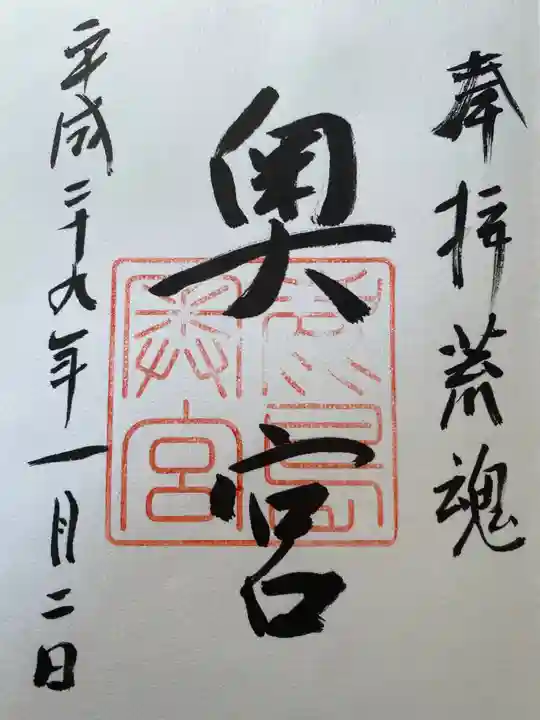 奉拝荒魂
奥宮
平成二十九年一月二日